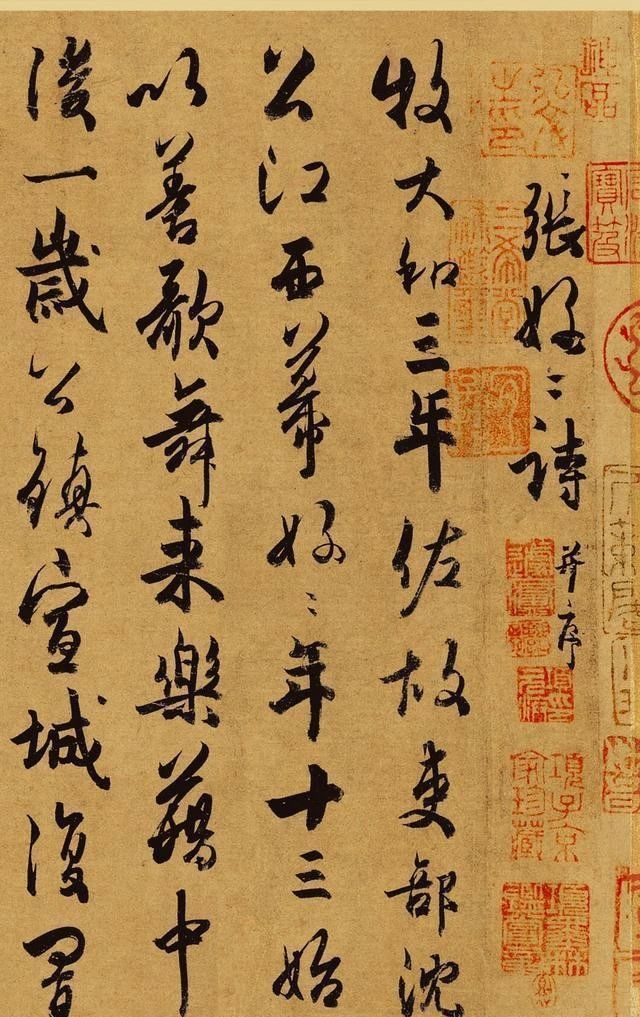 張好〻詩 并序
項子京家珍藏
牧大和三年佐故吏部沈
公江西幕好〻年十三始
以善歌舞来樂籍中
後一歲公鎮宣城復置